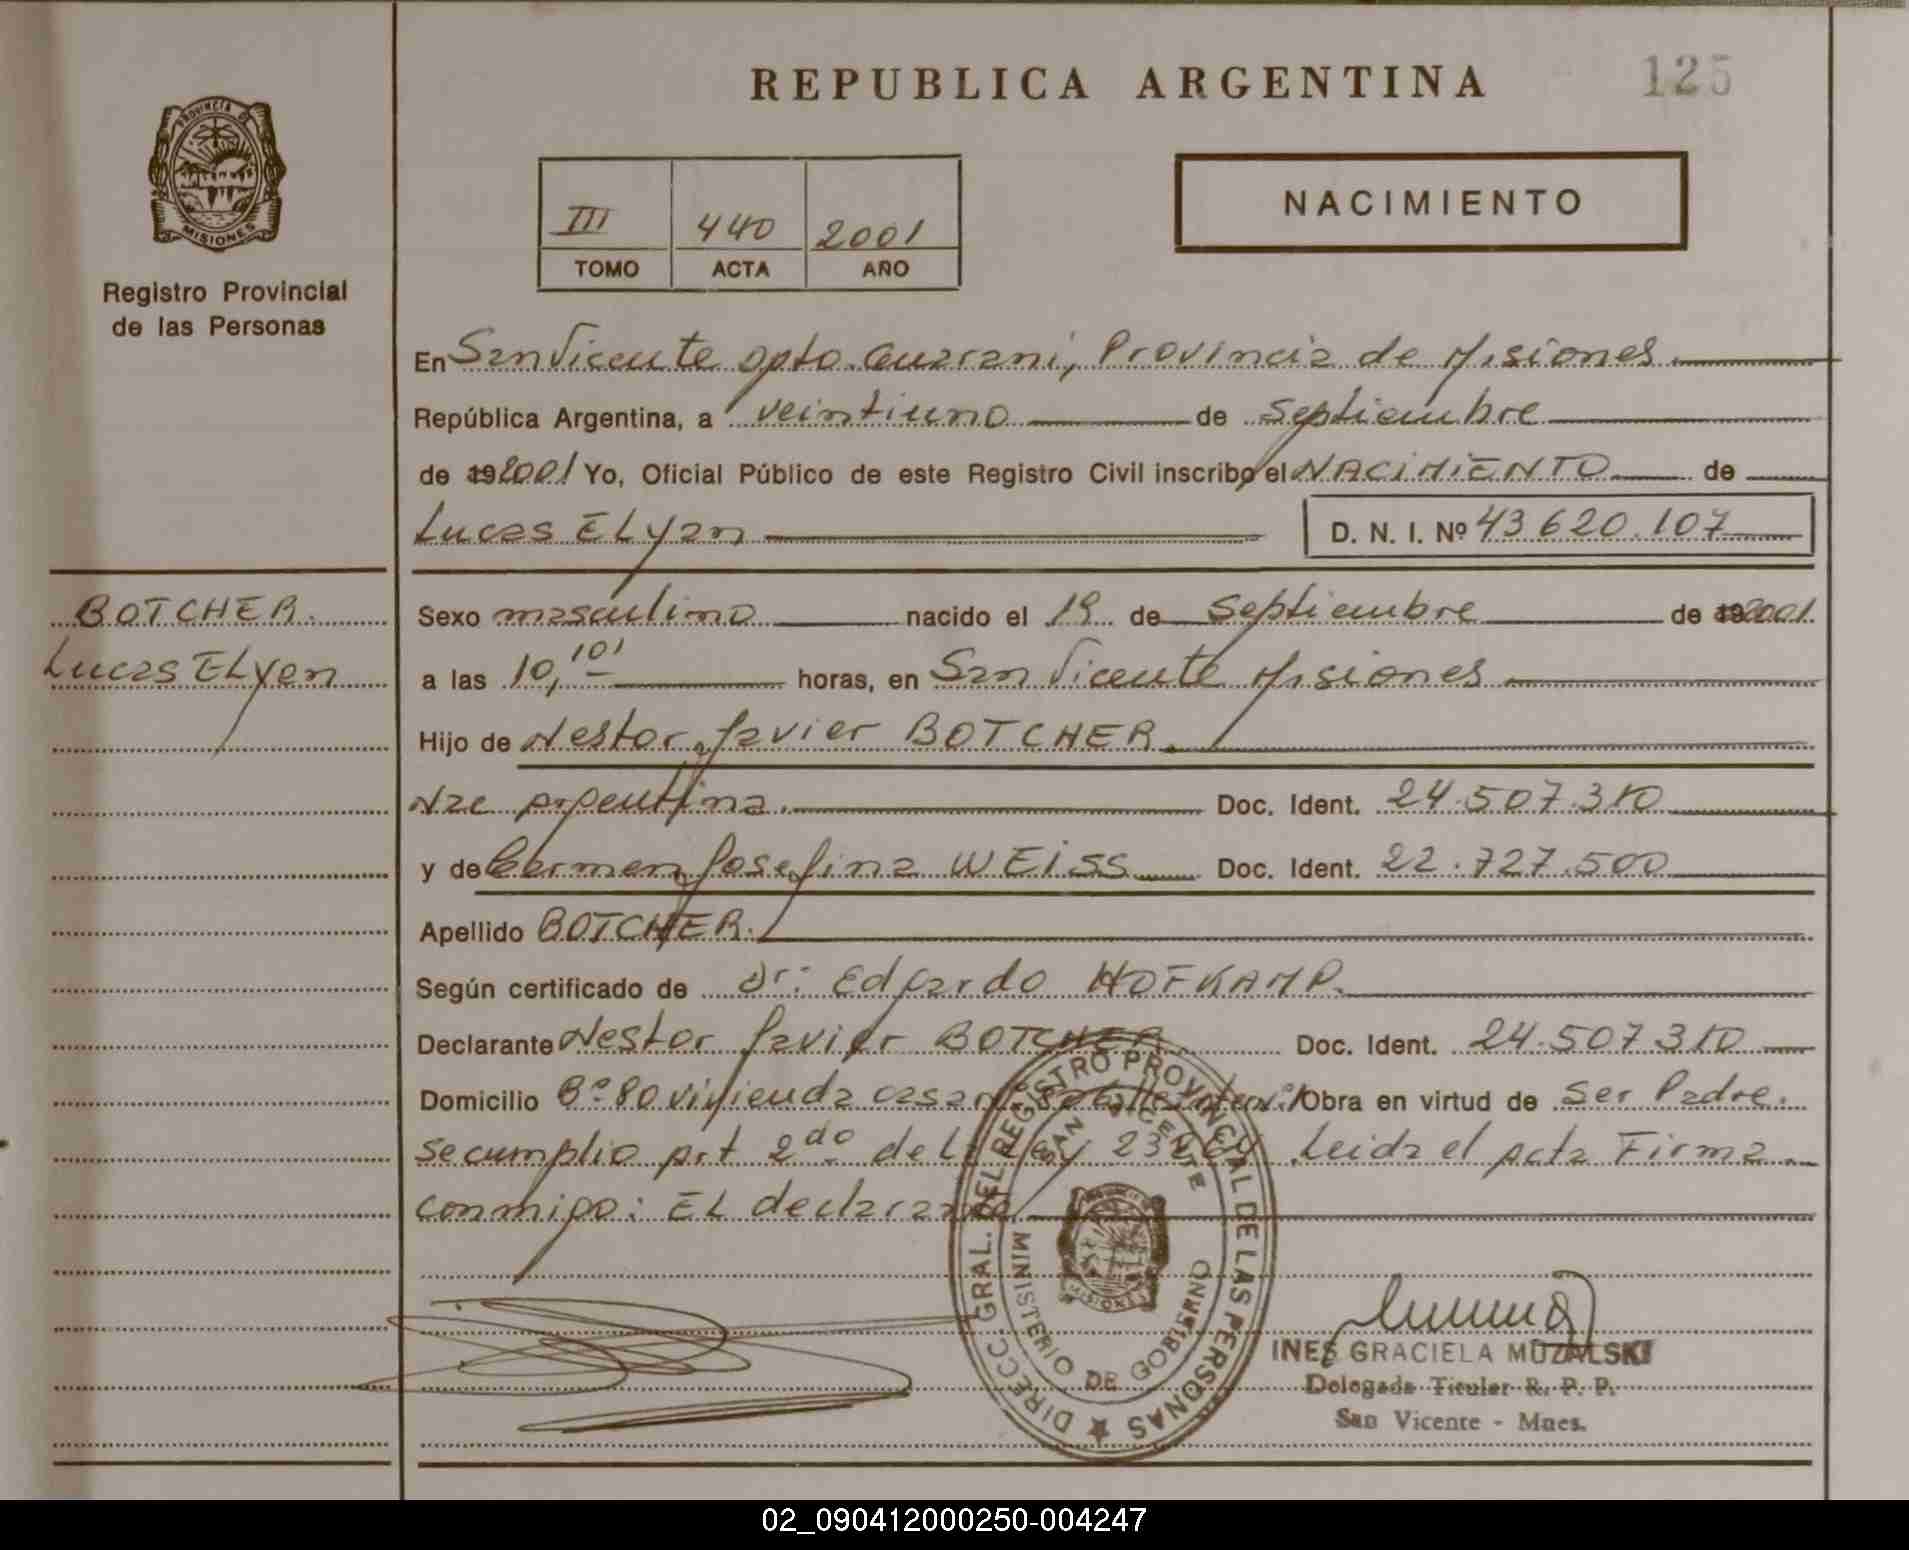 REPUBLICA ARGENTINA
125
PROVINCIA DE
MISIONES
Registro Provincial
de las Personas
NACIMIENTO
III 440 2001
TOMO ACTA AÑO
En San Vicente Dpto. Guarani, Provincia de Misiones
República Argentina, a veintiuno de Septiembre
de 192001 Yo, Oficial Público de este Registro Civil inscribo el NACIMIENTO de
Lucas ELyan D. N. I. Nº 43 620.107
BOTCHER.
Lucas ELyan
Sexo masculino nacido el 19 de Septiembre de 192001.
a las 10,10' horas, en San Vicente Misiones
Hijo de Nestor Javier BOTCHER
Nac Argentina. Doc. Ident. 24.507.310
y de Carmen Josefina WEISS Doc. Ident. 22.727.500
Apellido BOTCHER.
Según certificado de Dr: Edgardo HOFKAMP.
Declarante Nestor Javier BOTCHER Doc. Ident. 24.507.310
Domicilio Bº 80 vivienda casa Obra en virtud de Ser Padre.
Se cumplio Art 2do de La Ley Leida el Acta Firma
conmigo: EL declarante
DIRECC. GRAL. DEL REGISTRO PROVINCIAL DE LAS PERSONAS
SAN VICENTE
MINISTERIO DE GOBIERNO
MISIONES
INES GRACIELA MUZALSKI
Delegada Titular R. P. P.
San Vicente - Mnes.
02_090412000250-004247